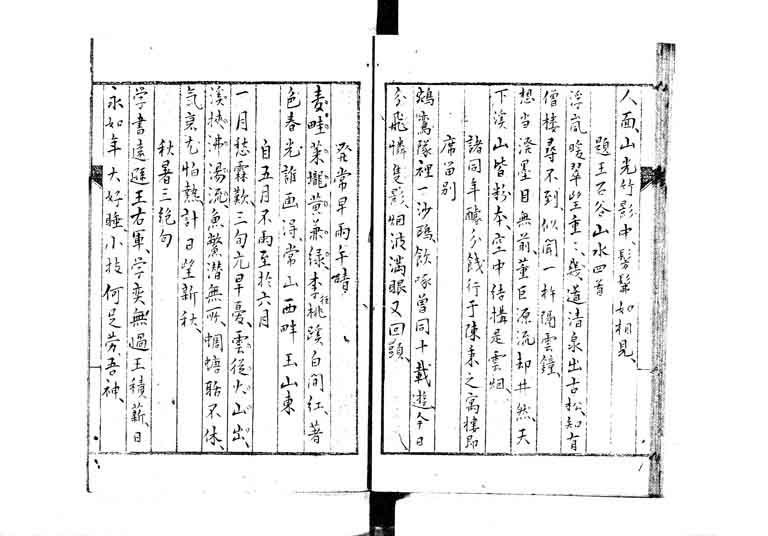 人面、山光竹影中、髣髴如相見、
題王石谷山水四首
浮嵐暖翠望重〻、幾道清泉出古松、知有
僧樓尋不到、似聞一杵隔雲鐘、
想当潑墨目無前、董巨源流却井然、天
下溪山皆粉本、空中結構是雲烟、
諸同年醵分餞行于陳東之寓樓即
席留別
鵷鸞隊裡一沙鷗、飲啄曾同十載遊、今日
分飛憐隻影、烟波滿眼又回頭、
発常早雨午晴
麦畦菜壠黄兼绿、李桃蹊白间红、著
色春光誰画得、常山西畔玉山東
自五月不雨至於六月
一月愁霖歎三旬亢旱憂、雲從火山出、
溪挾沸湯流、魚鱉潜無所、蜩螗聒不休、
氣衰尤怕熱、計日望新秋、
秋暑三絶句
学書遠遜王右軍、学奕無過王積薪、日
永如年大好睡、小技何足劳吾神、